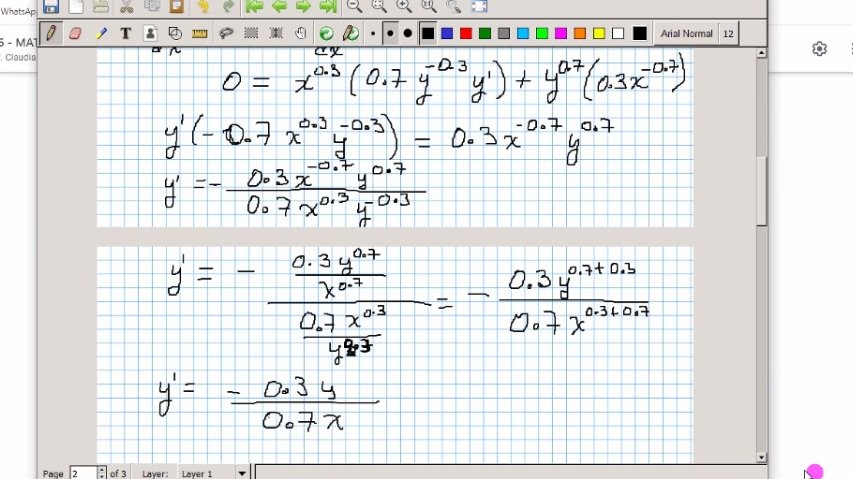 WhatsApp
Arial Normal 12
5 - MAT
. Claudia
dx dx
0 = x^0.3 (0.7 y^-0.3 y') + y^0.7 (0.3x^-0.7)
y' (-0.7 x^0.3 y^-0.3) = 0.3x^-0.7 y^0.7
y' = - 0.3x^-0.7 y^0.7 / 0.7x^0.3 y^-0.3
y' = - (0.3 y^0.7 / x^0.7) / (0.7 x^0.3 / y^0.3) = - 0.3y^0.7+0.3 / 0.7x^0.3+0.7
y' = - 0.3 y / 0.7 x
Page 2 of 3 Layer: Layer 1